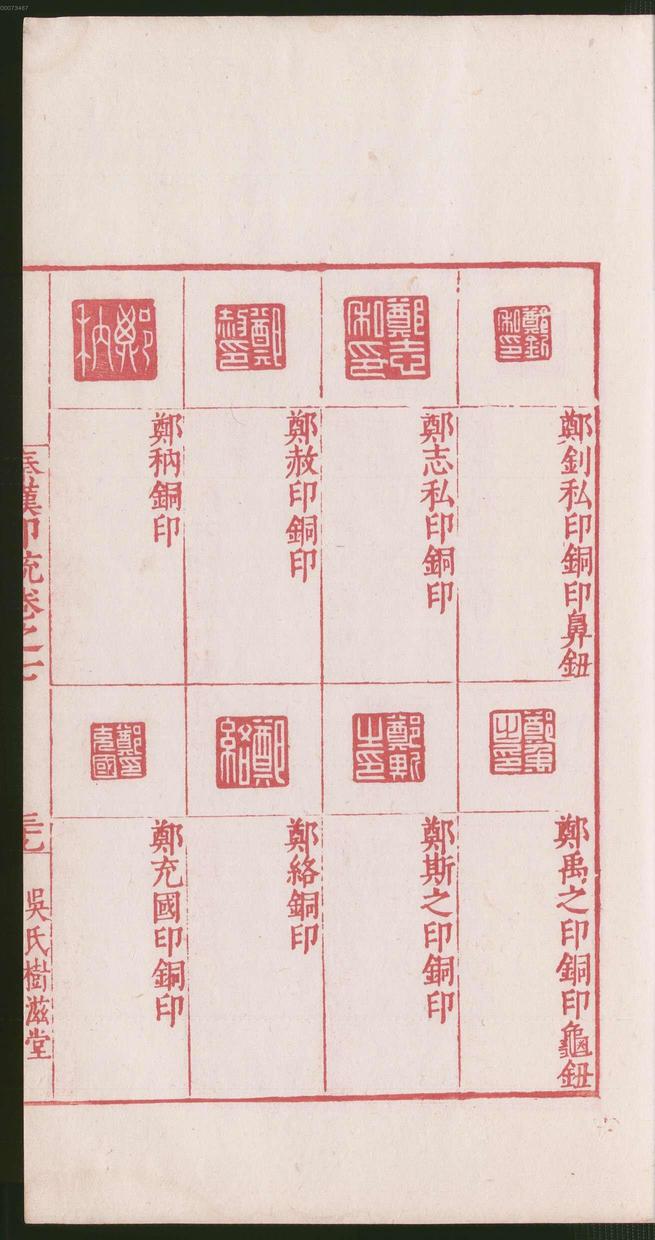 00073467
鄭釗私印銅印鼻鈕
鄭志私印銅印
鄭赦印銅印
鄭秱銅印
鄭禹之印銅印龜鈕
鄭斯之印銅印
鄭絡銅印
鄭充國印銅印
秦漢印統卷之七
吳氏樹滋堂